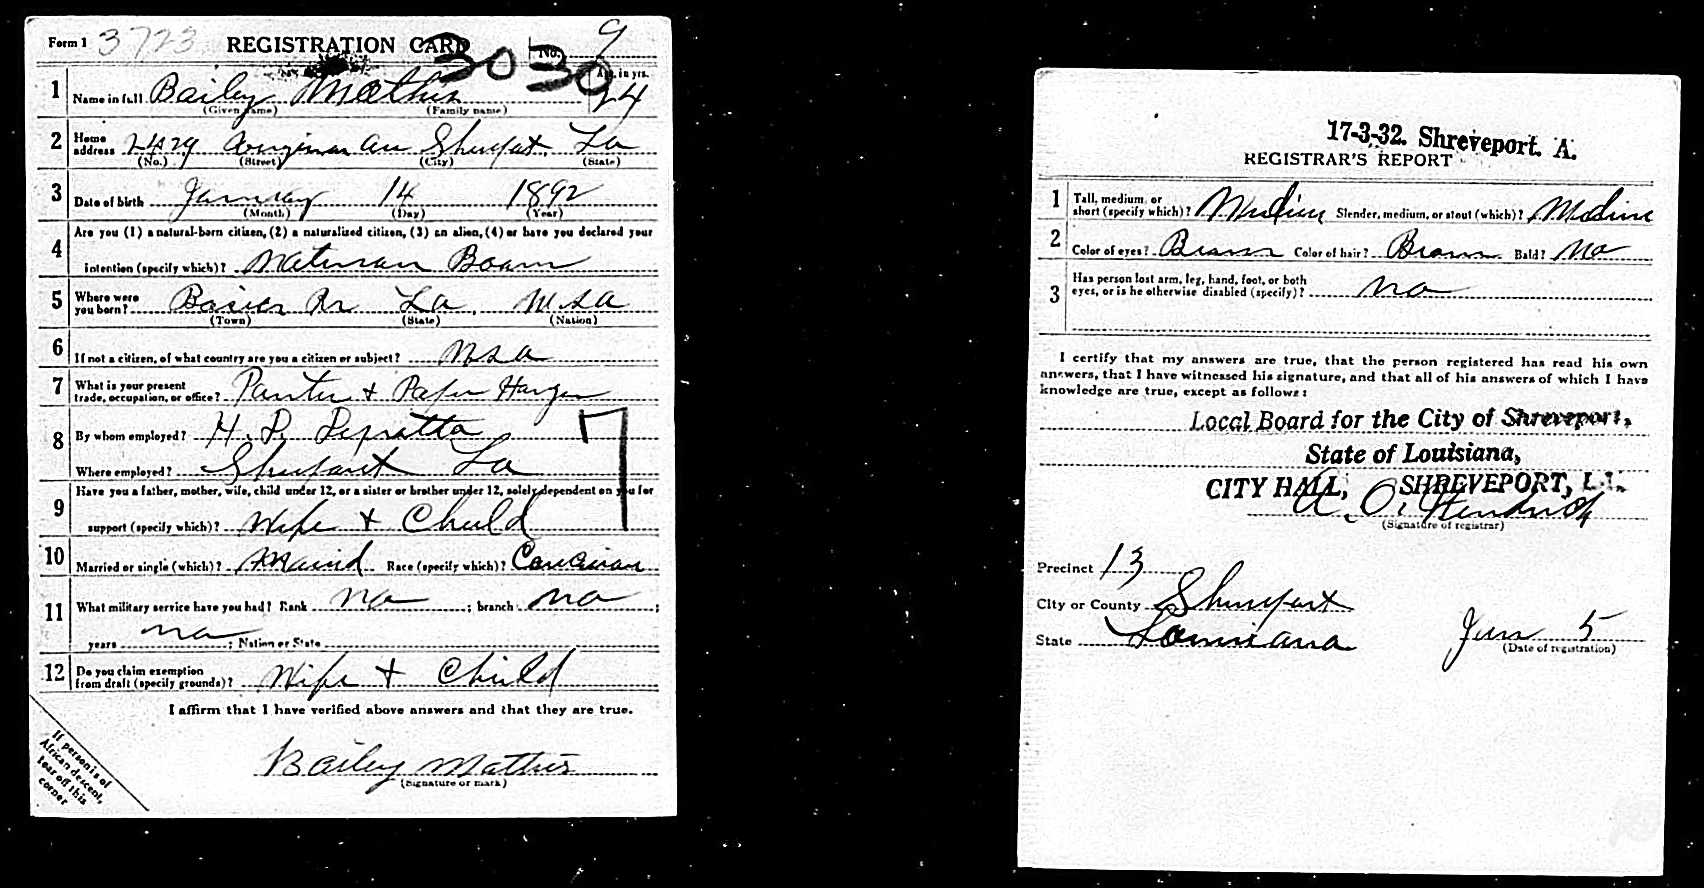 Form 1 3723 REGISTRATION CARD No. 9
3030
1 Name in full Bailey Mathis Age, in yrs. 24
(Given name) (Family name)
2 Home address 2429 Av Shreveport, La
(No.) (Street) (City) (State)
3 Date of birth January 14 1892
(Month) (Day) (Year)
4 Are you (1) a natural-born citizen, (2) a naturalized citizen, (3) an alien, (4) or have you declared your
intention (specify which)? Born
5 Where were you born? La, USA
(Town) (State) (Nation)
6 If not a citizen, of what country are you a citizen or subject? USA
7 What is your present trade, occupation, or office? Painter + Paper Hanger
8 By whom employed?
Where employed? Shreveport La
9 Have you a father, mother, wife, child under 12, or a sister or brother under 12, solely dependent on you for
support (specify which)? Wife + Child
10 Married or single (which)? Married Race (specify which)? Caucasian
11 What military service have you had? Rank no ; branch no ;
years no ; Nation or State
12 Do you claim exemption from draft (specify grounds)? Wife + Child
I affirm that I have verified above answers and that they are true.
Bailey Mathis
(Signature or mark)
If person is of
African descent,
tear off this
corner
17-3-32. Shreveport. A.
REGISTRAR'S REPORT
1 Tall, medium, or short (specify which)? Medium Slender, medium, or stout (which)? Medium
2 Color of eyes? Brown Color of hair? Brown Bald? No
3 Has person lost arm, leg, hand, foot, or both eyes, or is he otherwise disabled (specify)? no
I certify that my answers are true, that the person registered has read his own
answers, that I have witnessed his signature, and that all of his answers of which I have
knowledge are true, except as follows:
Local Board for the City of Shreveport,
State of Louisiana,
CITY HALL, SHREVEPORT, LA.
A. O. Hendrick
(Signature of registrar)
Precinct 13
City or County Shreveport
State Louisiana
June 5
(Date of registration)